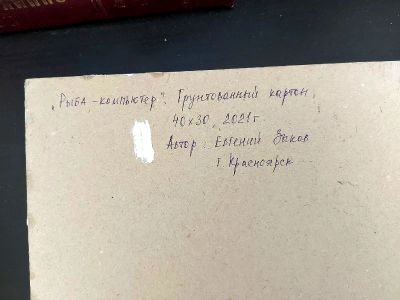 „Рыба-компьютер". Грунтованный картон,
40х30, 2021г.
Автор: Евгений
г. Красноярск